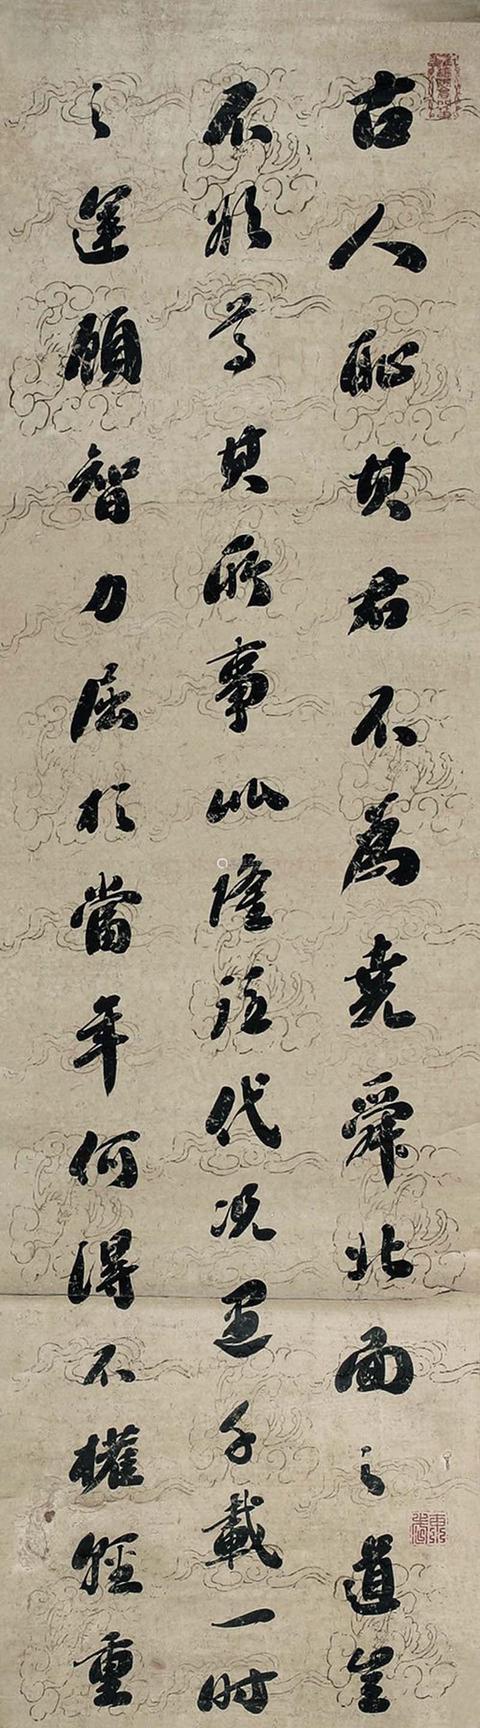 古人恥其君不為堯舜北面之道豈
不願尊其所事比隆往代況遇千載一時
之運顧智力屈於當年何得不權輕重